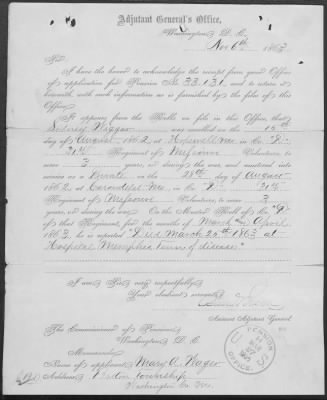 Adjutant General's Office,
Washington, D. C.
Nov 6th, 1863
Sir:
I have the honor to acknowledge the receipt from your Office
of application for Pension No. 33,131, and to return it
herewith, with such information as is furnished by the files of this
Office.
It appears from the Rolls on file in this Office, that
Sidney Wagar was enrolled on the 15th
day of August 1862, at Hopewell Mo in Co. "
31st Regiment of Missouri Volunteers, to
serve 3 years, or during the war, and mustered into
service as a Private on the 28th day of August
1862, at Carondelet Mo, in Co. " 31st
Regiment of Missouri Volunteers, to serve 3
years, or during the war. On the Muster Roll of Co. "
of that Regiment, for the months of March and April
1863, he is reported "Died March 25th 1863 at
Hospital Memphis Tenn of disease"
I am, Sir, very respectfully,
Your obedient servant,
Assistant Adjutant General.
The Commissioner of Pensions,
Washington, D. C.
Memoranda:
Name of applicant, Mary A. Wagar
Address, township
Washington Co. Mo.
PENSION
OFFICE